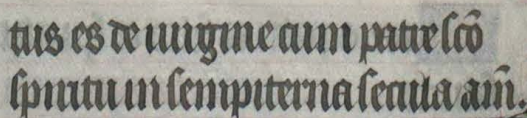 tus es de uirgine cum patre scō
spiritu in sempiterna secula am̄.